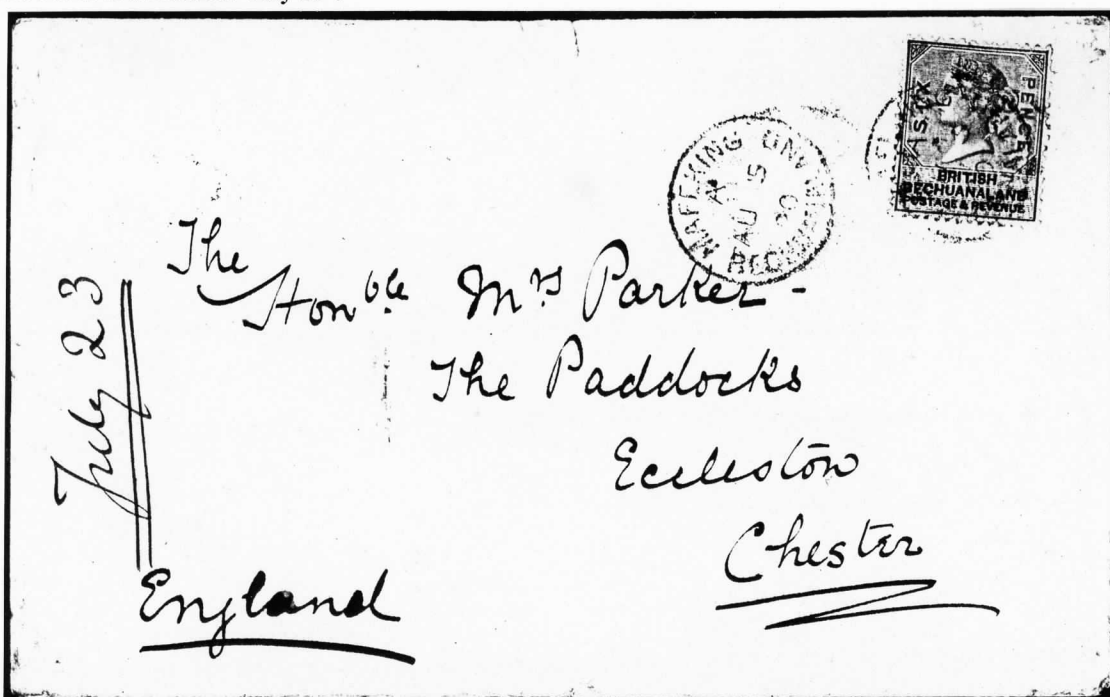 SIX
PENCE
BRITISH
BECHUANALAND
POSTAGE & REVENUE
MAFEKING
A
AU 5
90
The
Honble Mrs Parker -
The Paddocks
Eccleston
Chester
England
July 23